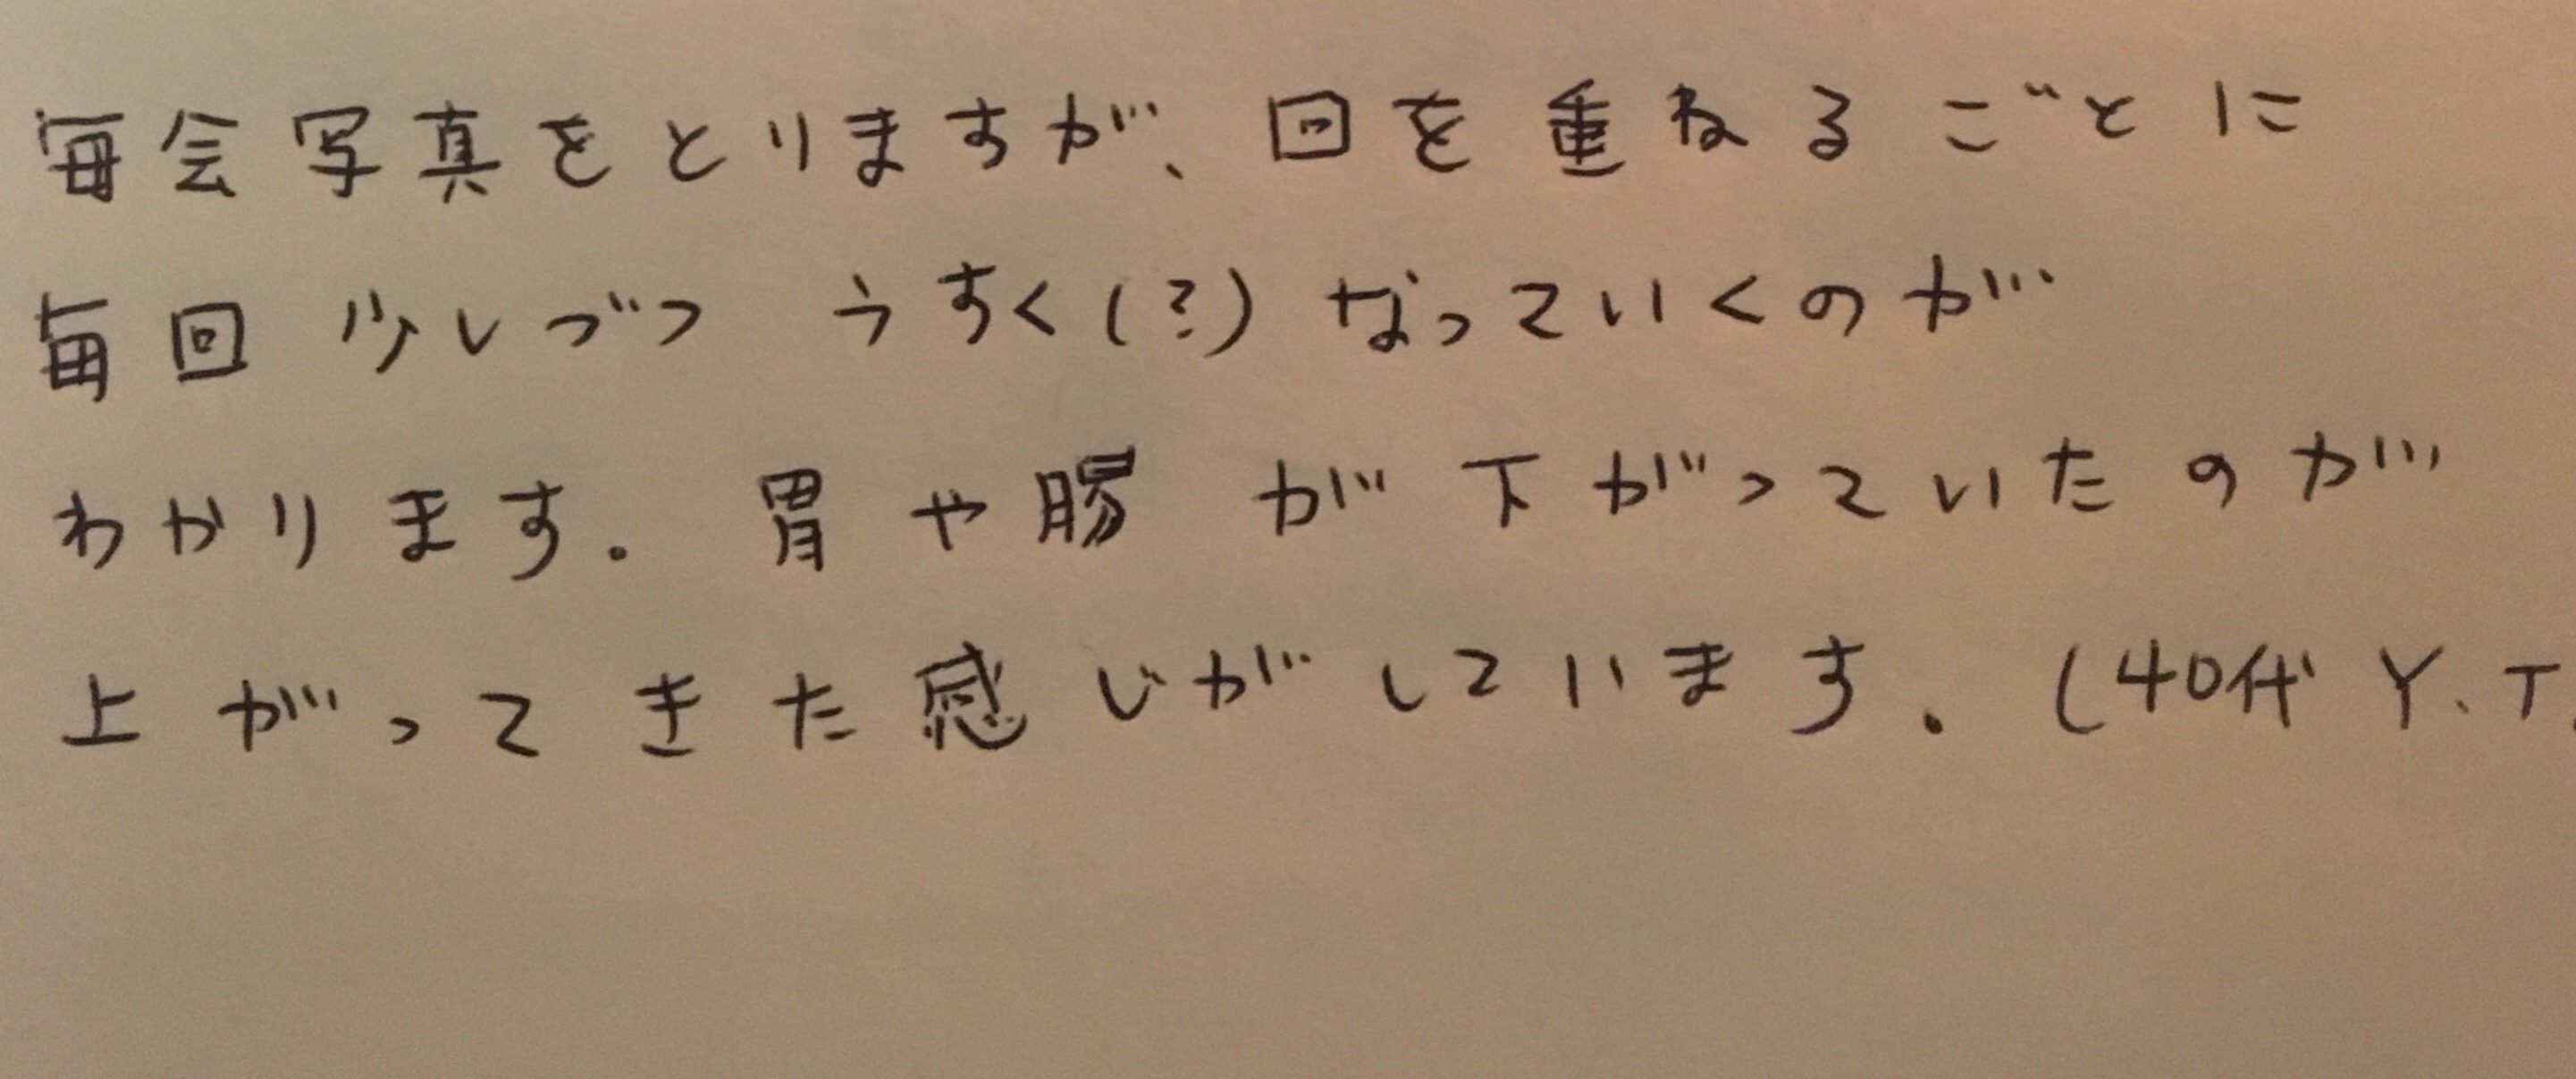 毎会写真をとりますが、回を重ねるごとに
毎回 少しづつ うすく(?)なっていくのが
わかります。胃や腸が下がっていたのが
上がってきた感じがしています。(40代 Y.T.